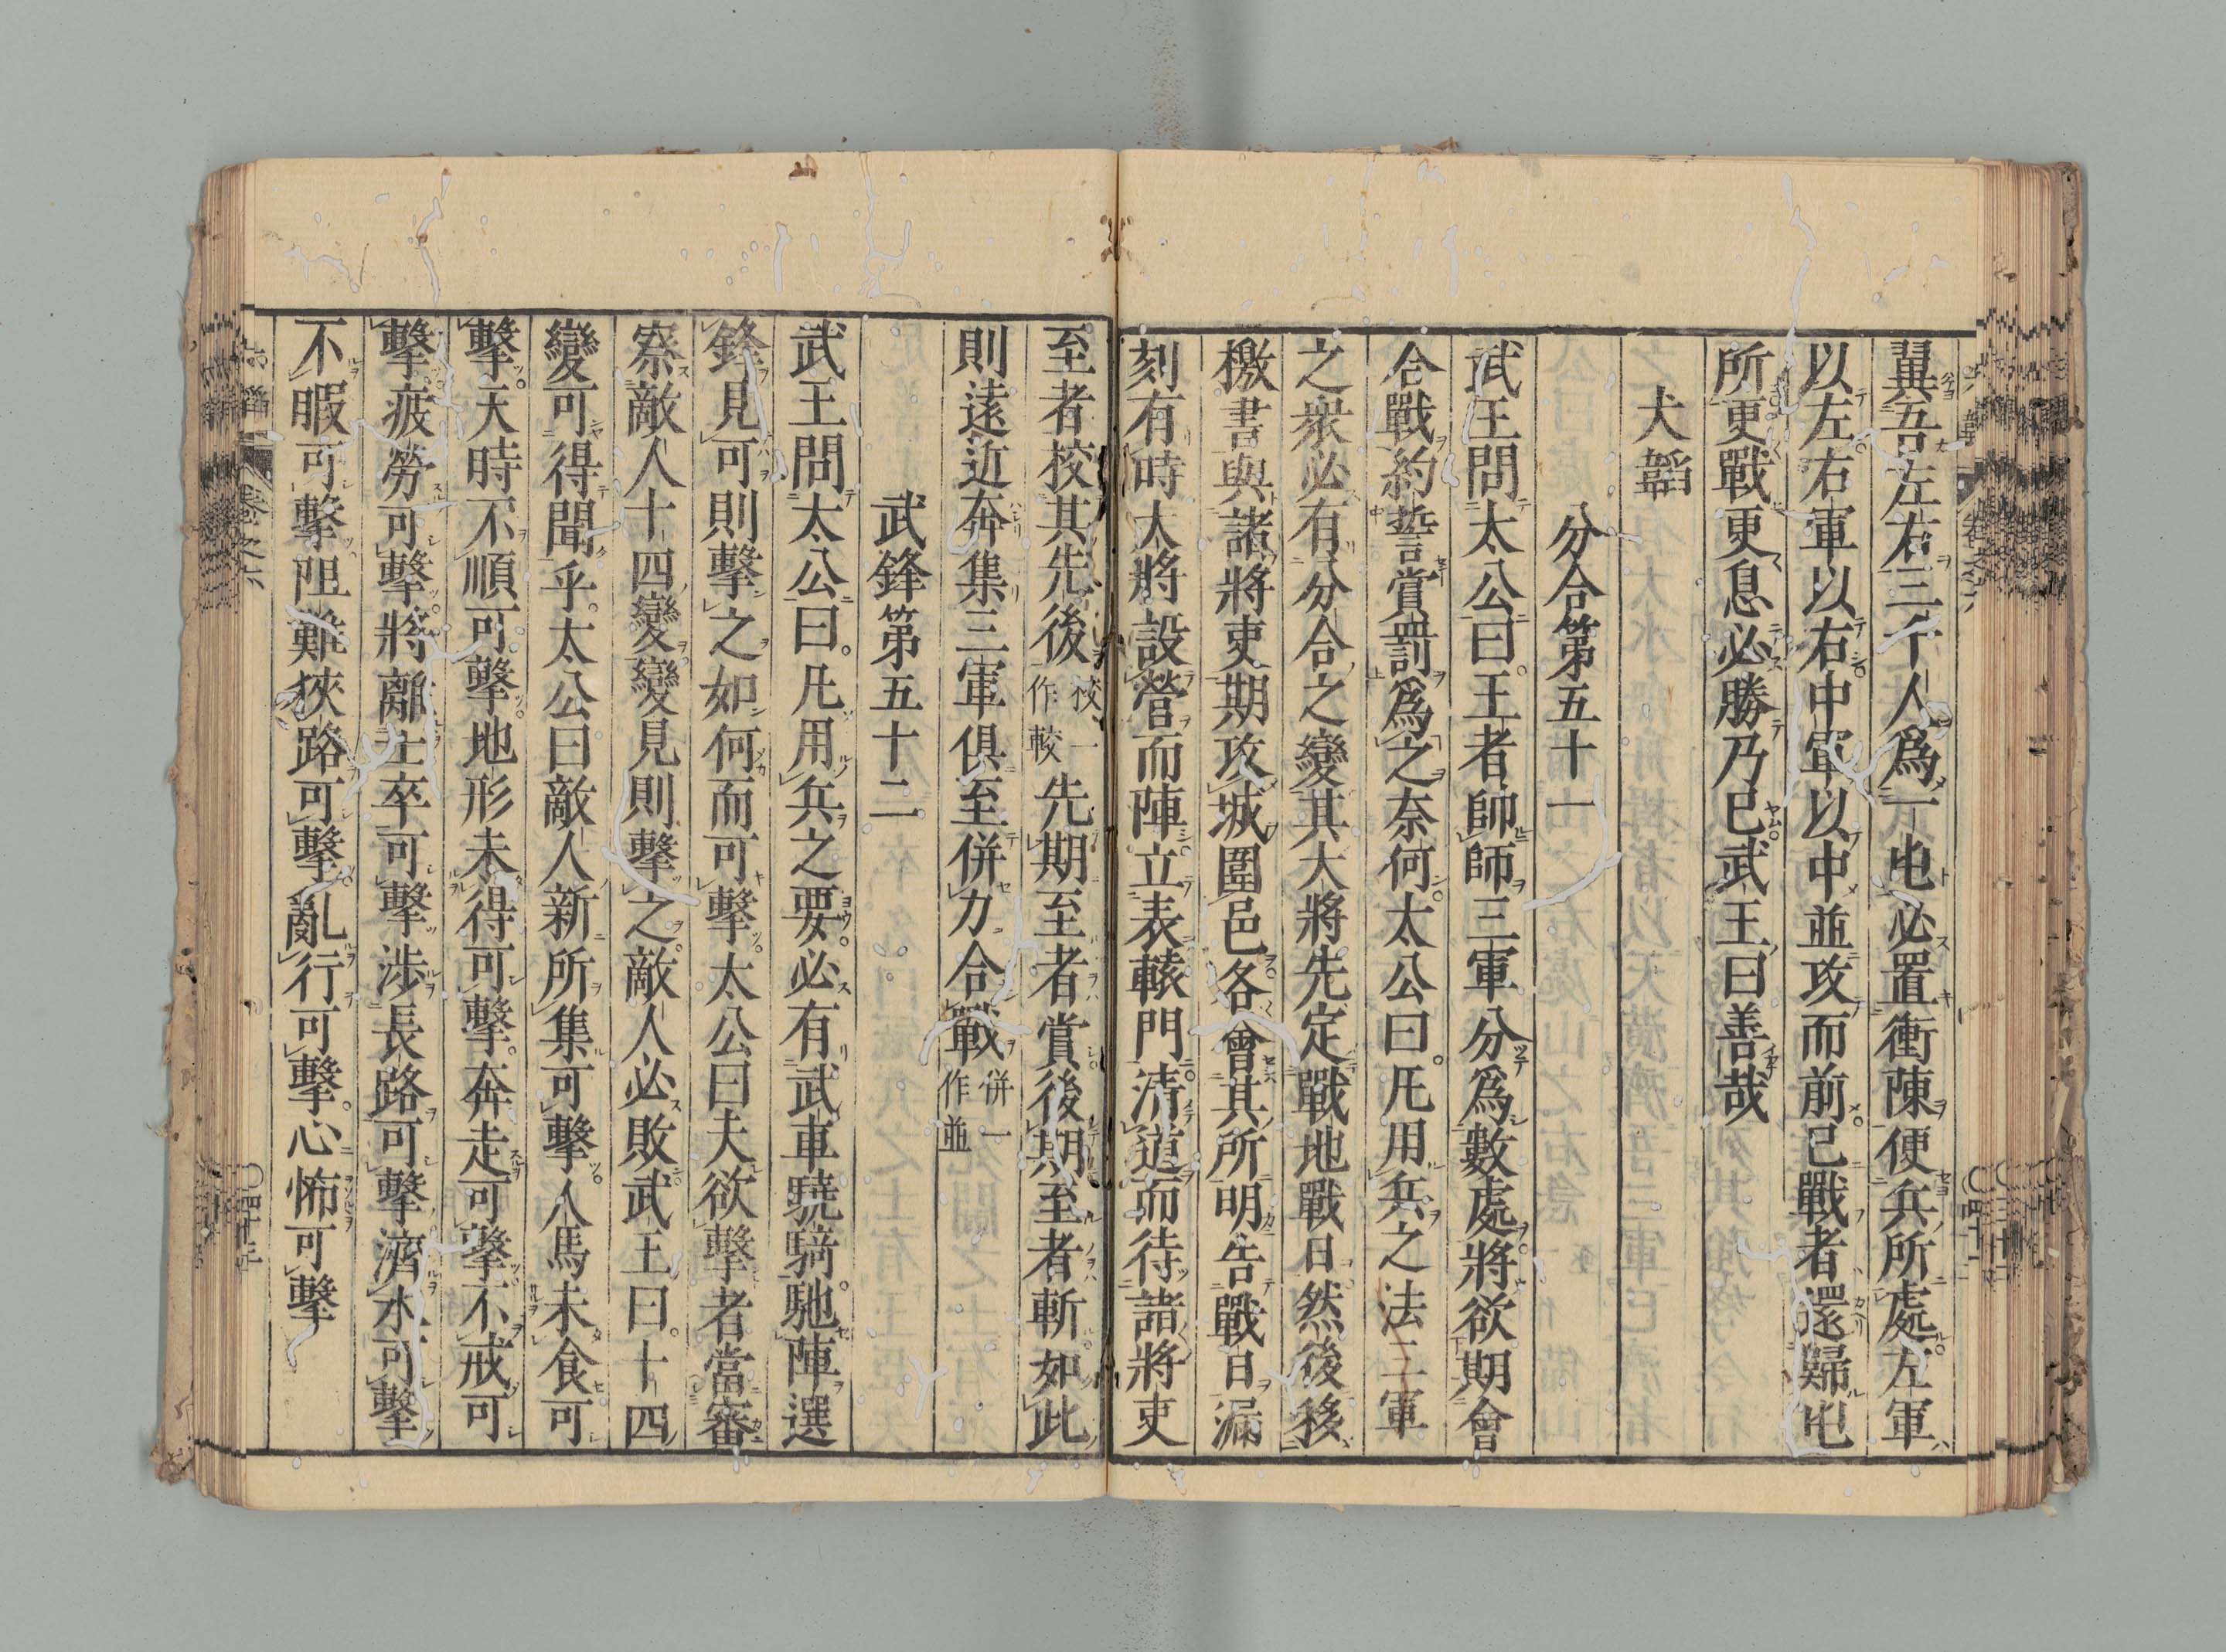 翼吾左右三千人爲一屯必置衝陳便兵所處左軍
以左右軍以右中軍以中並攻而前已戰者還歸屯
所更戰更息必勝乃已武王曰善哉
犬韜
分合第五十一
武王問太公曰王者帥師三軍分爲數處將欲期會
合戰約誓賞罰爲之奈何太公曰凡用兵之法三軍
之衆必有分合之變其大將先定戰地戰日然後移
檄書與諸將吏期攻城圍邑各會其所明告戰日漏
刻有時大將設營而陣立表轅門清道而待諸將吏
至者校其先後校一作較先期至者賞後期至者斬如此
則遠近奔集三軍俱至併力合戰併一作並
武鋒第五十二
武王問太公曰凡用兵之要必有武車驍騎馳陣選
鋒見可則擊之如何而可擊太公曰夫欲擊者當審
察敵人十四變變見則擊之敵人必敗武王曰十四
變可得聞乎太公曰敵人新所集可擊人馬未食可
擊天時不順可擊地形未得可擊奔走可擊不戒可
擊疲勞可擊將離士卒可擊涉長路可擊濟水可擊
不暇可擊阻難狹路可擊亂行可擊心怖可擊